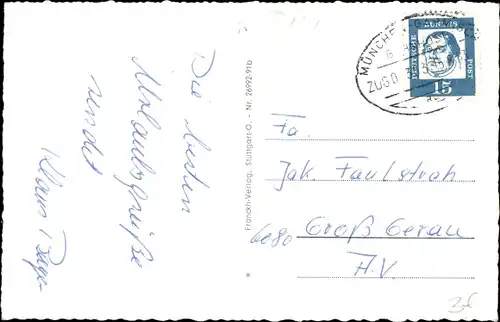 Die besten
Urlaubsgrüße
sendet
Klaus
Franckh-Verlag, Stuttgart-O. - Nr. 26992.91b
MÜNCHEN
ZUG
DEUTSCHE
POST
15
Fa.
Jak. Faulstroh
6080 Groß Gerau
H.V.